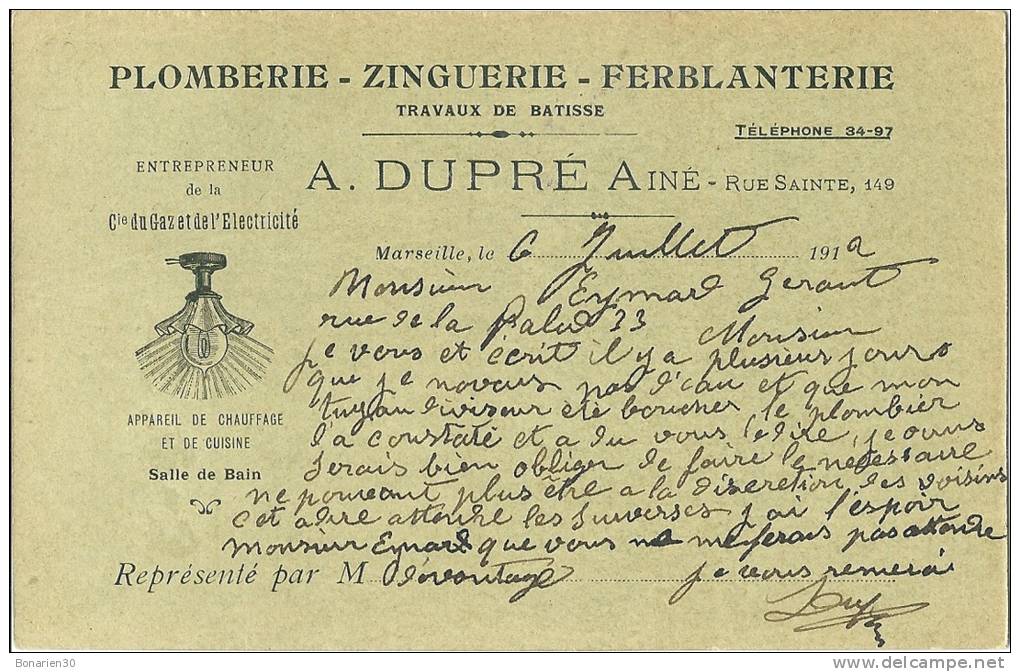 PLOMBERIE - ZINGUERIE - FERBLANTERIE
TRAVAUX DE BATISSE
TÉLÉPHONE 34-97
ENTREPRENEUR
de la
Cie du Gaz et de l'Electricité
A. DUPRÉ AINÉ - RUE SAINTE, 149
Marseille, le 6 Juillet 1912
Monsieur Eymard Gerant
rue de la Palud 33 Monsieur
je vous et écrit il y a plusieurs jours
que je navais pas d'eau et que mon
tuyau diviseur été boucher, le plombier
l'a constaté et a du vous le dire, je vous
serais bien obliger de faire le necessaire
ne pouvant plus être a la discretion des voisins
cet a dire attendre les surverses j'ai l'espoir
Monsieur Eymard que vous ne me ferais pas attendre
APPAREIL DE CHAUFFAGE
ET DE CUISINE
Salle de Bain
Représenté par M davantage je vous remerci
Bonarien30
www.delcampe.net